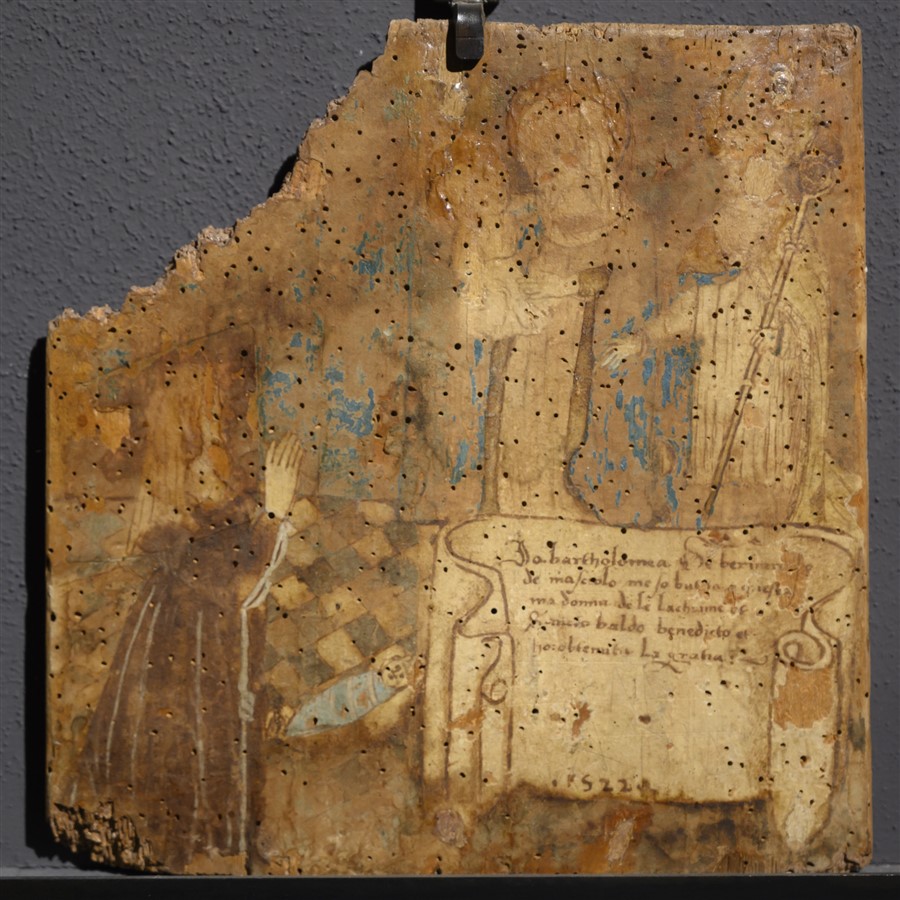 Io bartholomea de
de mascolo me so butda a questa
ma donna de le lachrime et
santo baldo benedicto et
ho: obtenuta La gratia:
1522